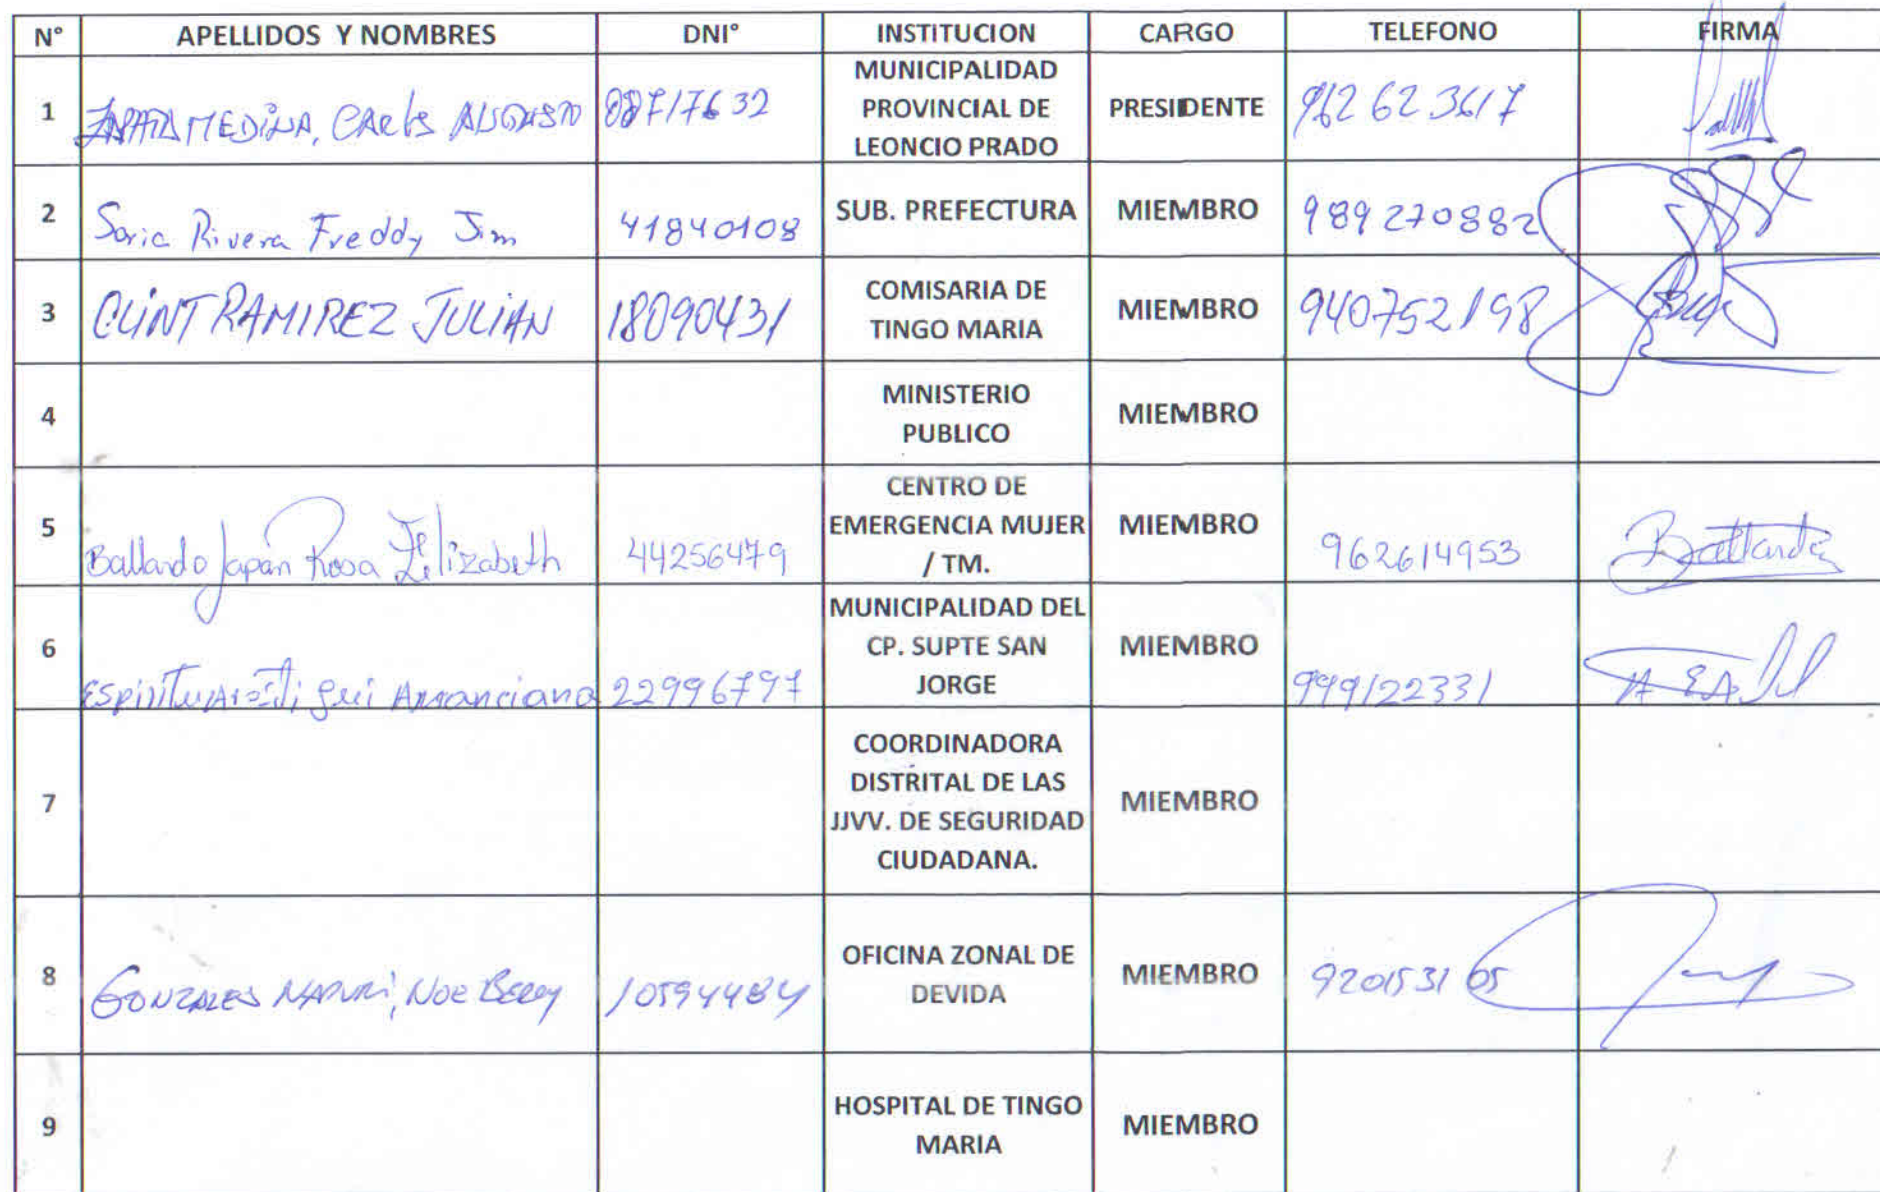 N° APELLIDOS Y NOMBRES DNI° INSTITUCION CARGO TELEFONO FIRMA
1 ZAPATA MEDINA, CARLOS AUGUSTO 08717632 MUNICIPALIDAD PROVINCIAL DE LEONCIO PRADO PRESIDENTE 962623617
2 Soria Rivera Freddy Jim 41840108 SUB. PREFECTURA MIEMBRO 989270882
3 CLINT RAMIREZ JULIAN 18090431 COMISARIA DE TINGO MARIA MIEMBRO 940752198
4 MINISTERIO PUBLICO MIEMBRO
5 Ballardo Japan Rosa Elizabeth 44256479 CENTRO DE EMERGENCIA MUJER / TM. MIEMBRO 962614953 Ballardo
6 Espiritu Amanciano 22996797 MUNICIPALIDAD DEL CP. SUPTE SAN JORGE MIEMBRO 999122331
7 COORDINADORA DISTRITAL DE LAS JJVV. DE SEGURIDAD CIUDADANA. MIEMBRO
8 GONZALES NAPURI, NOE 10594484 OFICINA ZONAL DE DEVIDA MIEMBRO 920153105
9 HOSPITAL DE TINGO MARIA MIEMBRO